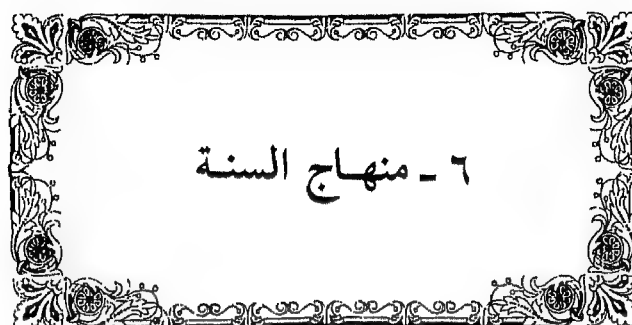 ٦ ـ منهـاج السنـة